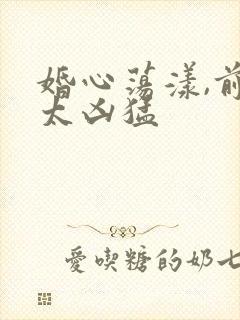 婚心荡漾,前
太凶猛
爱喫糖的奶七